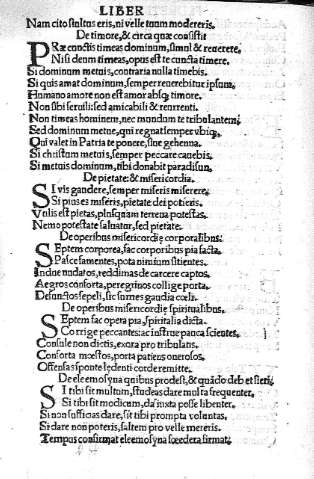 LIBER
Nam cito stultus eris, ni velle tuum modereris.
De timore, & circa quæ consistit
PRæ cunctis timeas dominum, simul & reuerere.
Ni si deum timeas, opus est te cuncta timere.
Si dominum metuis, contraria nulla timebis.
Si quis amat dominum, semper renerebitur ipsum.
Humano amore non est amor absq; timore.
Non sibi seruili: sed amicabili & reuerenti.
Non timeas hominem, nec mundom te tribulantem:
Sed dominum metue, qui regnat semper vbiq;
Qui valet in Patria te ponere, siue gehenna.
Si christum metuis, semper peccare cauebis.
Si metuis dominum, tibi donabit paradisum.
De pietate: & misericordia.
SI vis gaudere, semper miseris miserere.
Si pius es miseris, pietate dei potieris.
Vtilis est pietas, plusquam terrena potestas.
Nemo potestate saluatur, sed pietate.
De operibus misericordię corporalibus:
SEptem corporea, fac corporibus pia facta.
Pasce famentes, pota nimium sitientes.
Indue nudatos, reddimas de carcere captos,
Aegros conforta, peregrinos collige porta.
Defunctos sepeli, sic sumes gaudia cœli.
De operibus misericordię spiritualibus.
SEptem fac opera pia, spiritalia dicta.
Corrige peccantes: ac instrue pauca scientes.
Consule non dictis, exora pro tribulans.
Conforta mœstos, porta patiens onerosos.
Offensas sponte lędenti corde remitte.
De eleemosyna quibus prodest, & quādo debet fieri:
SI tibi sit multum, studeas dare multa frequenter.
Si tibi sit modicum, da iuxta posse libenter.
Si non sufficias dare, sit tibi prompta voluntas.
Si dare non poteris, saltem pro velle mereris.
Tempus confirmat eleemosyna fœdera firmat: